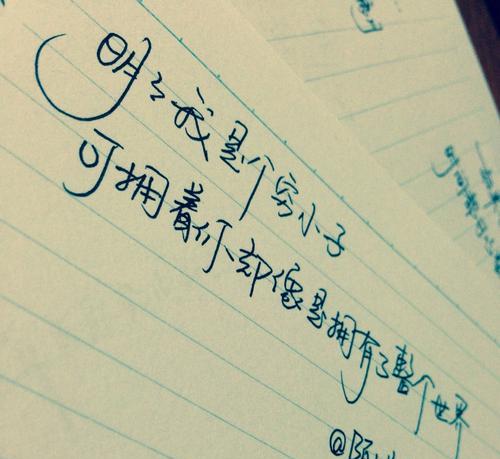 明明我是个穷小子
可拥着你却像是拥有了整个世界